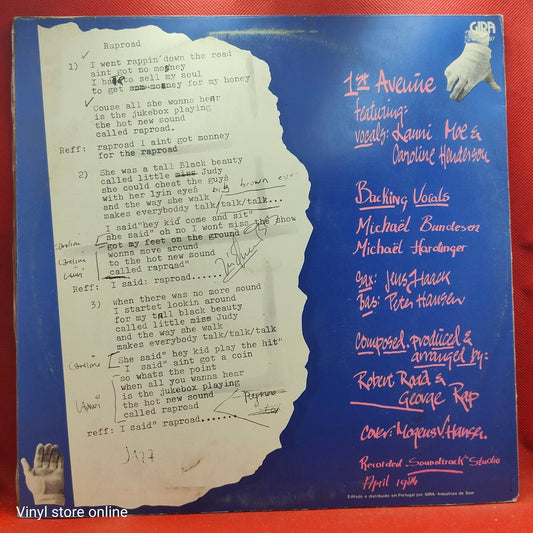 Raproad
1) I went rappin' down the road
aint got no money
I had to sell my soul
to get money for my honey
Couse all she wonna hear
is the jukebox playing
the hot new sound
called raproad.
Reff: raproad I aint got monney
for the raproad
2) She was a tall Black beauty
called little miss Judy
she could cheat the guys
with her lyin eyes with brown eyes
and the way she walk
makes everybody talk/talk/talk
I said"hey kid come and sit"
she said" oh no I wont miss the show
got my feet on the ground
wonna move around
to the hot new sound
called raproad"
Reff: I said: raproad......
3) when there was no more sound
I startet lookin around
for my tall black beauty
called little miss Judy
and the way she walk
makes everybody talk/talk/talk
She said" hey kid play the hit"
I said" aint got a coin
so whats the point
when all you wanna hear
is the jukebox playing
the hot new sound
called raproad.......
reff: I said" raproad......
GIRA
1st Avenue
featuring:
vocals: Lanni Moe &
Caroline Henderson
Backing Vocals
Michaël Bundesen
Michaël Hardinger
Sax: Jens Haack
Bas: Peter Hansen
Composed, produced &
arranged by:
Robert Road &
George Rap
Cover: Mogens V. Hansen
Recorded "Soundtrack" Studio
April 1984
Editado e distribuido em Portugal por GIRA - Industrias de Som
Vinyl store online